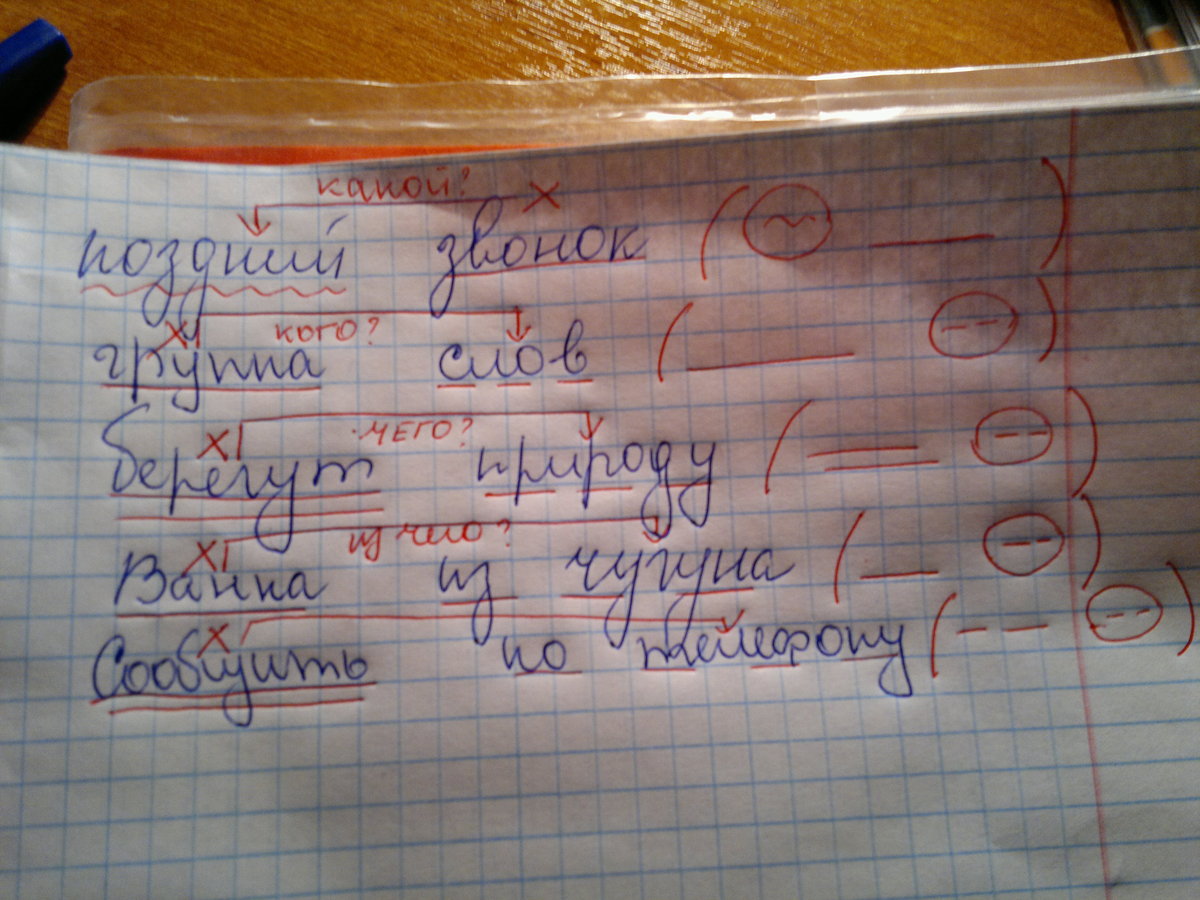 какой?
поздний звонок
кого?
группа слов
чего?
берегут природу
из чего?
Ванка из чугуна
Сообщить по телефону